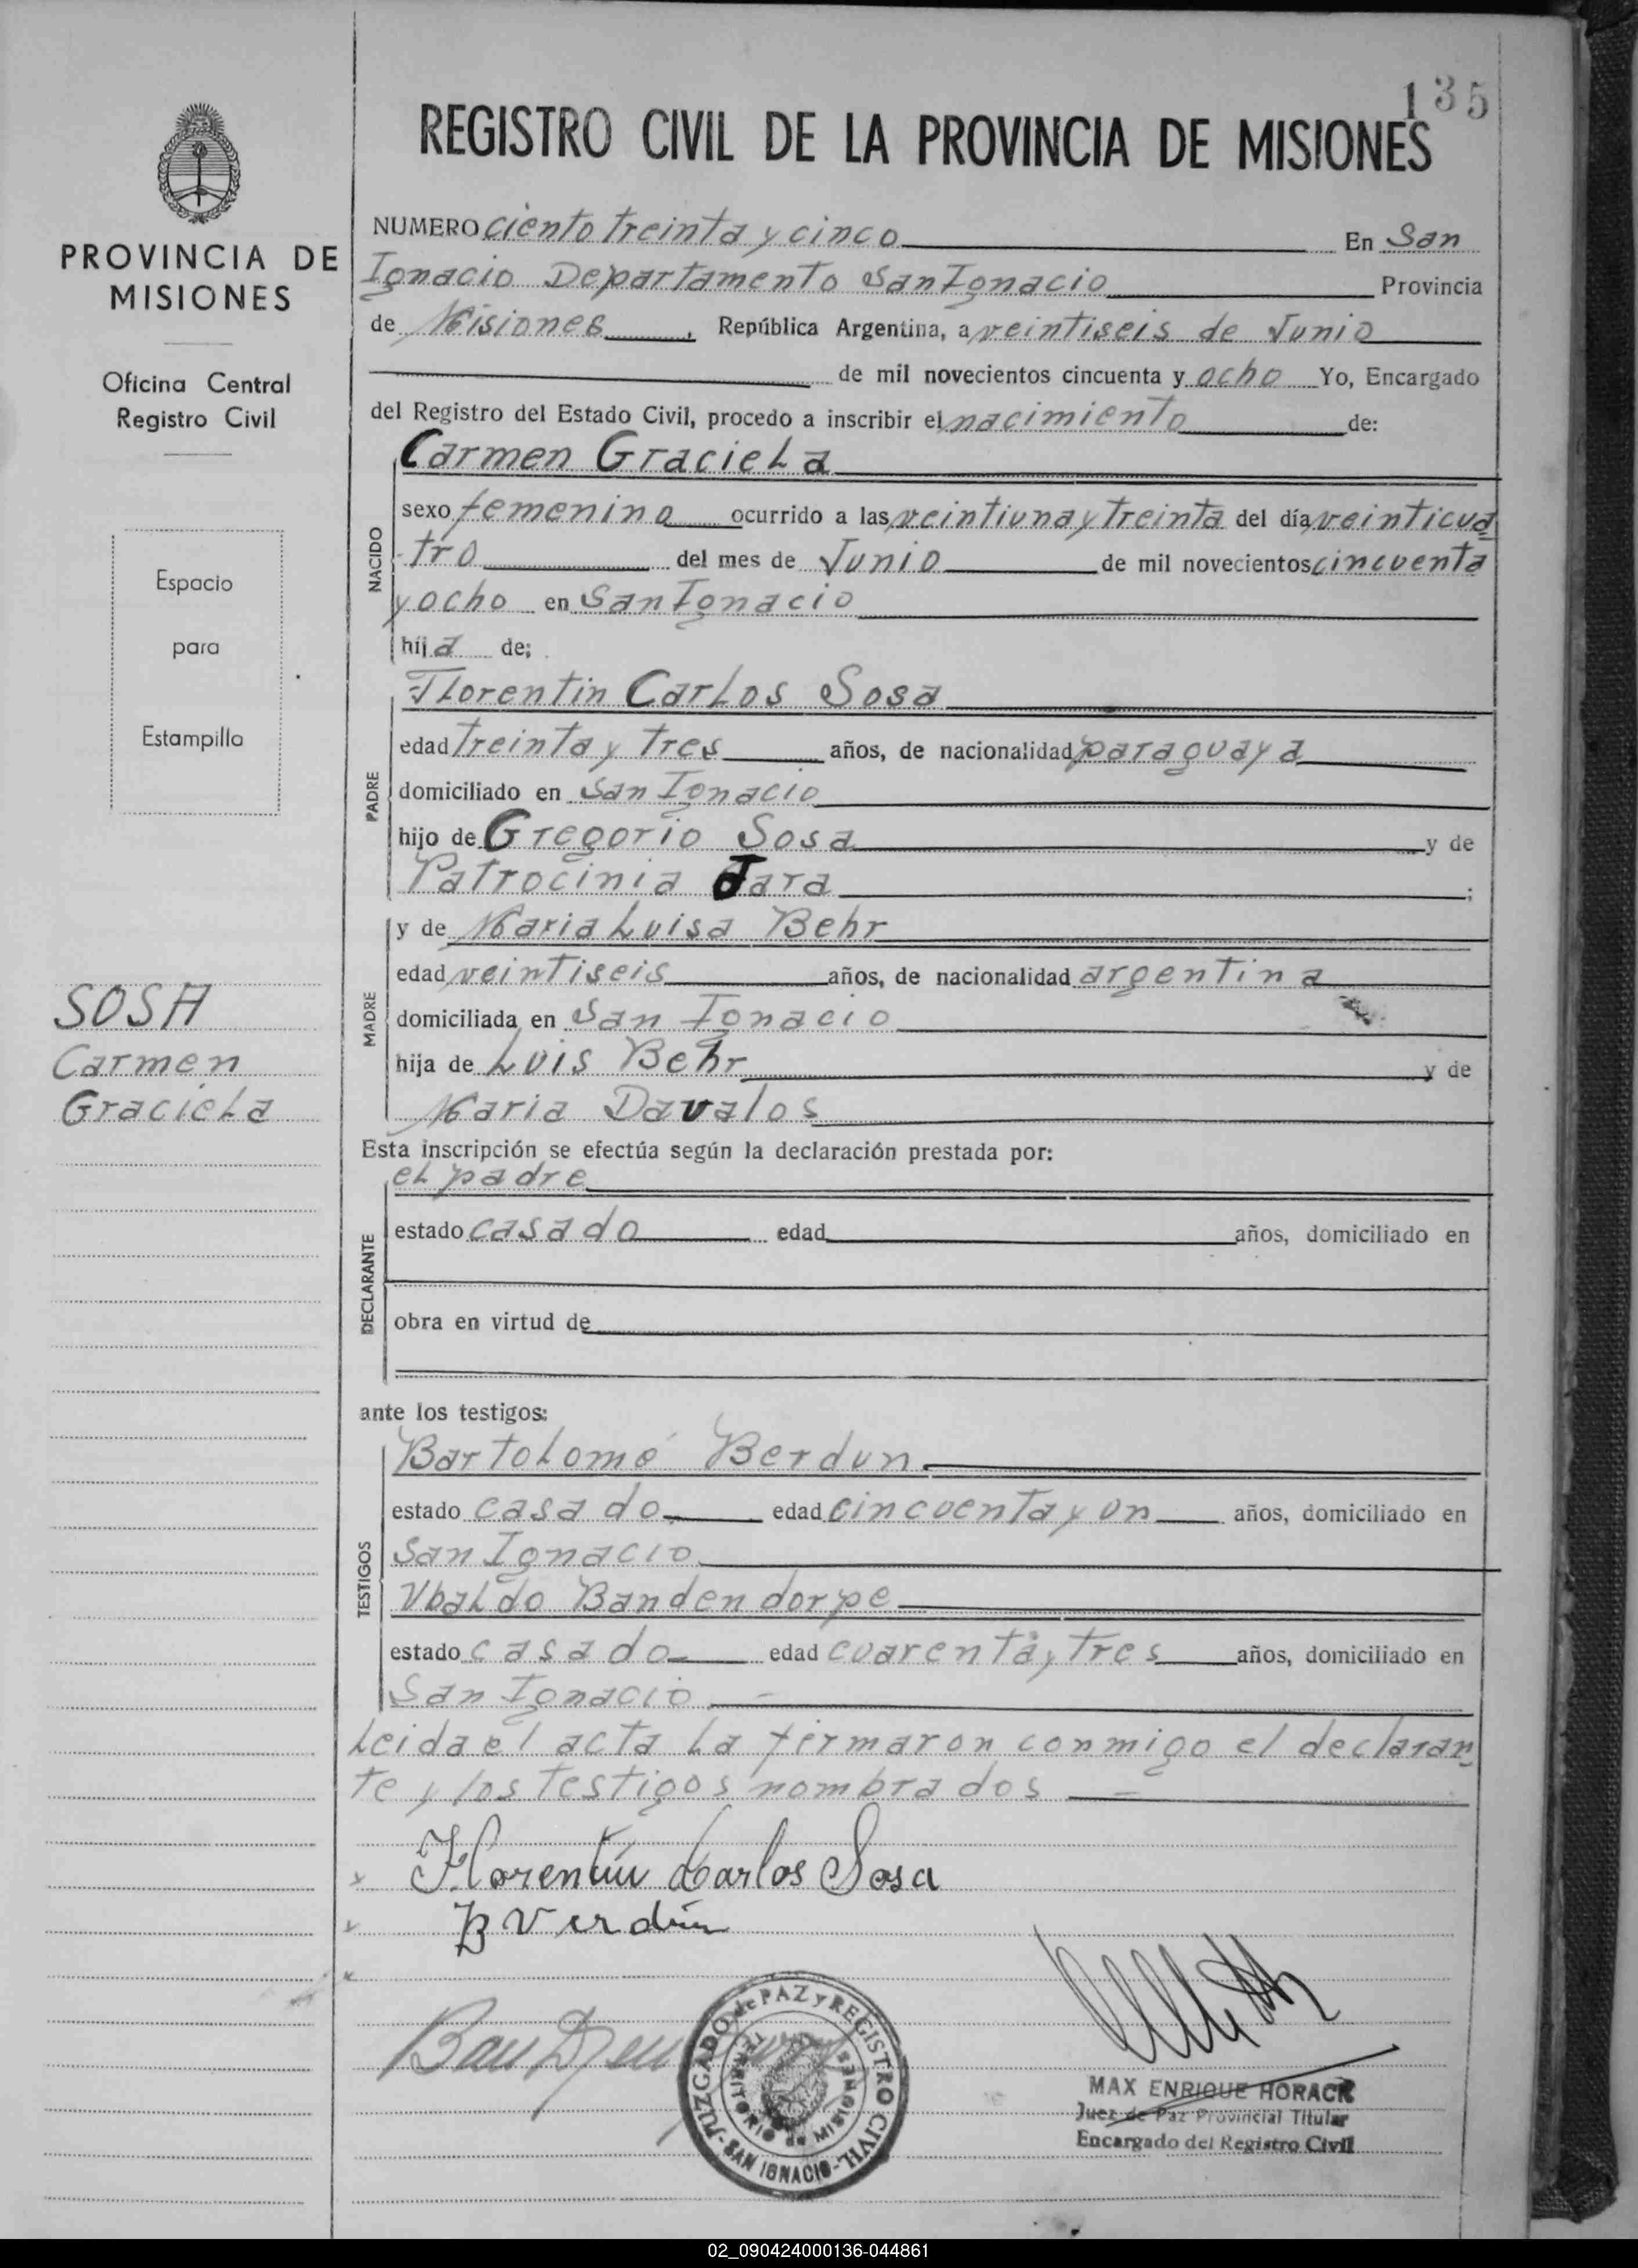 135
REGISTRO CIVIL DE LA PROVINCIA DE MISIONES
PROVINCIA DE
MISIONES
Oficina Central
Registro Civil
Espacio
para
Estampilla
SOSA
Carmen
Graciela
NUMERO ciento treinta y cinco En San
Ignacio Departamento San Ignacio Provincia
de Misiones, República Argentina, a veintiseis de Junio
de mil novecientos cincuenta y ocho Yo, Encargado
del Registro del Estado Civil, procedo a inscribir el nacimiento de:
NACIDO
Carmen Graciela
sexo femenino ocurrido a las veintiuna y treinta del día veinticua
tro del mes de Junio de mil novecientos cincuenta
y ocho en San Ignacio
hija de:
PADRE
Florentin Carlos Sosa
edad treinta y tres años, de nacionalidad paraguaya
domiciliado en San Ignacio
hijo de Gregorio Sosa y de
Patrocinia Jara;
MADRE
y de Maria Luisa Behr
edad veintiseis años, de nacionalidad argentina
domiciliada en San Ignacio
hija de Luis Behr y de
Maria Davalos
Esta inscripción se efectúa según la declaración prestada por:
DECLARANTE
el padre
estado casado edad años, domiciliado en
obra en virtud de
ante los testigos:
TESTIGOS
Bartolomé Berdun
estado casado edad cincuenta y un años, domiciliado en
San Ignacio
Ubaldo Bandendorpe
estado casado edad cuarenta y tres años, domiciliado en
San Ignacio
Leida el acta la firmaron conmigo el declaran
te y los testigos nombrados
Florentín Carlos Sosa
B Verdún
JUZGADO de PAZ y REGISTRO CIVIL
SAN IGNACIO
TERRITORIO de MISIONES
MAX ENRIQUE HORACK
Juez de Paz Provincial Titular
Encargado del Registro Civil
02_090424000136-044861